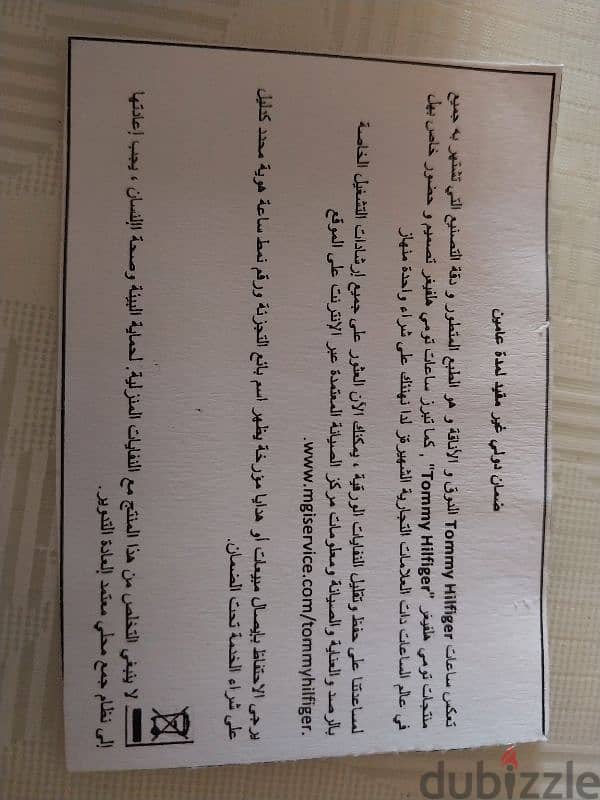 ضمان دولي غير مقيد لمدة عامين
تعكس ساعات Tommy Hilfiger الذوق و الأناقة و هو الطبع المتطور و دقة التصنيع التي تشتهر به جميع
منتجات تومي هلفيغر "Tommy Hilfiger" , كما تبرز ساعات تومي هلفيغر تصميم و حضور خاص بهل
في عالم الساعات ذات العلامات التجارية الشهيرة ز لذا نهنئك على شراء واحدة منهاز
لمساعدتنا على حفظ وتقليل النفايات الورقية ، يمكنك الآن العثور على جميع إرشادات التشغيل الخاصة
بالرصد والعناية والصيانة ومعلومات مركز الصيانة المعتمدة عبر الإنترنت على الموقع
.www.mgiservice.com/tommyhilfiger.
يرجى الاحتفاظ بإيصال مبيعات او هدايا مؤرخة يظهر اسم بائع التجزئة ورقم نمط ساعة هوية محدد كدليل
على شراء الخدمة تحت الضمان.
لا ينبغي التخلص من هذا المنتج مع النفايات المنزلية. لحماية البيئة وصحة الإنسان ، يجب إعادتها
إلى نظام جمع محلي معتمد لإعادة التدوير.
dubizzle